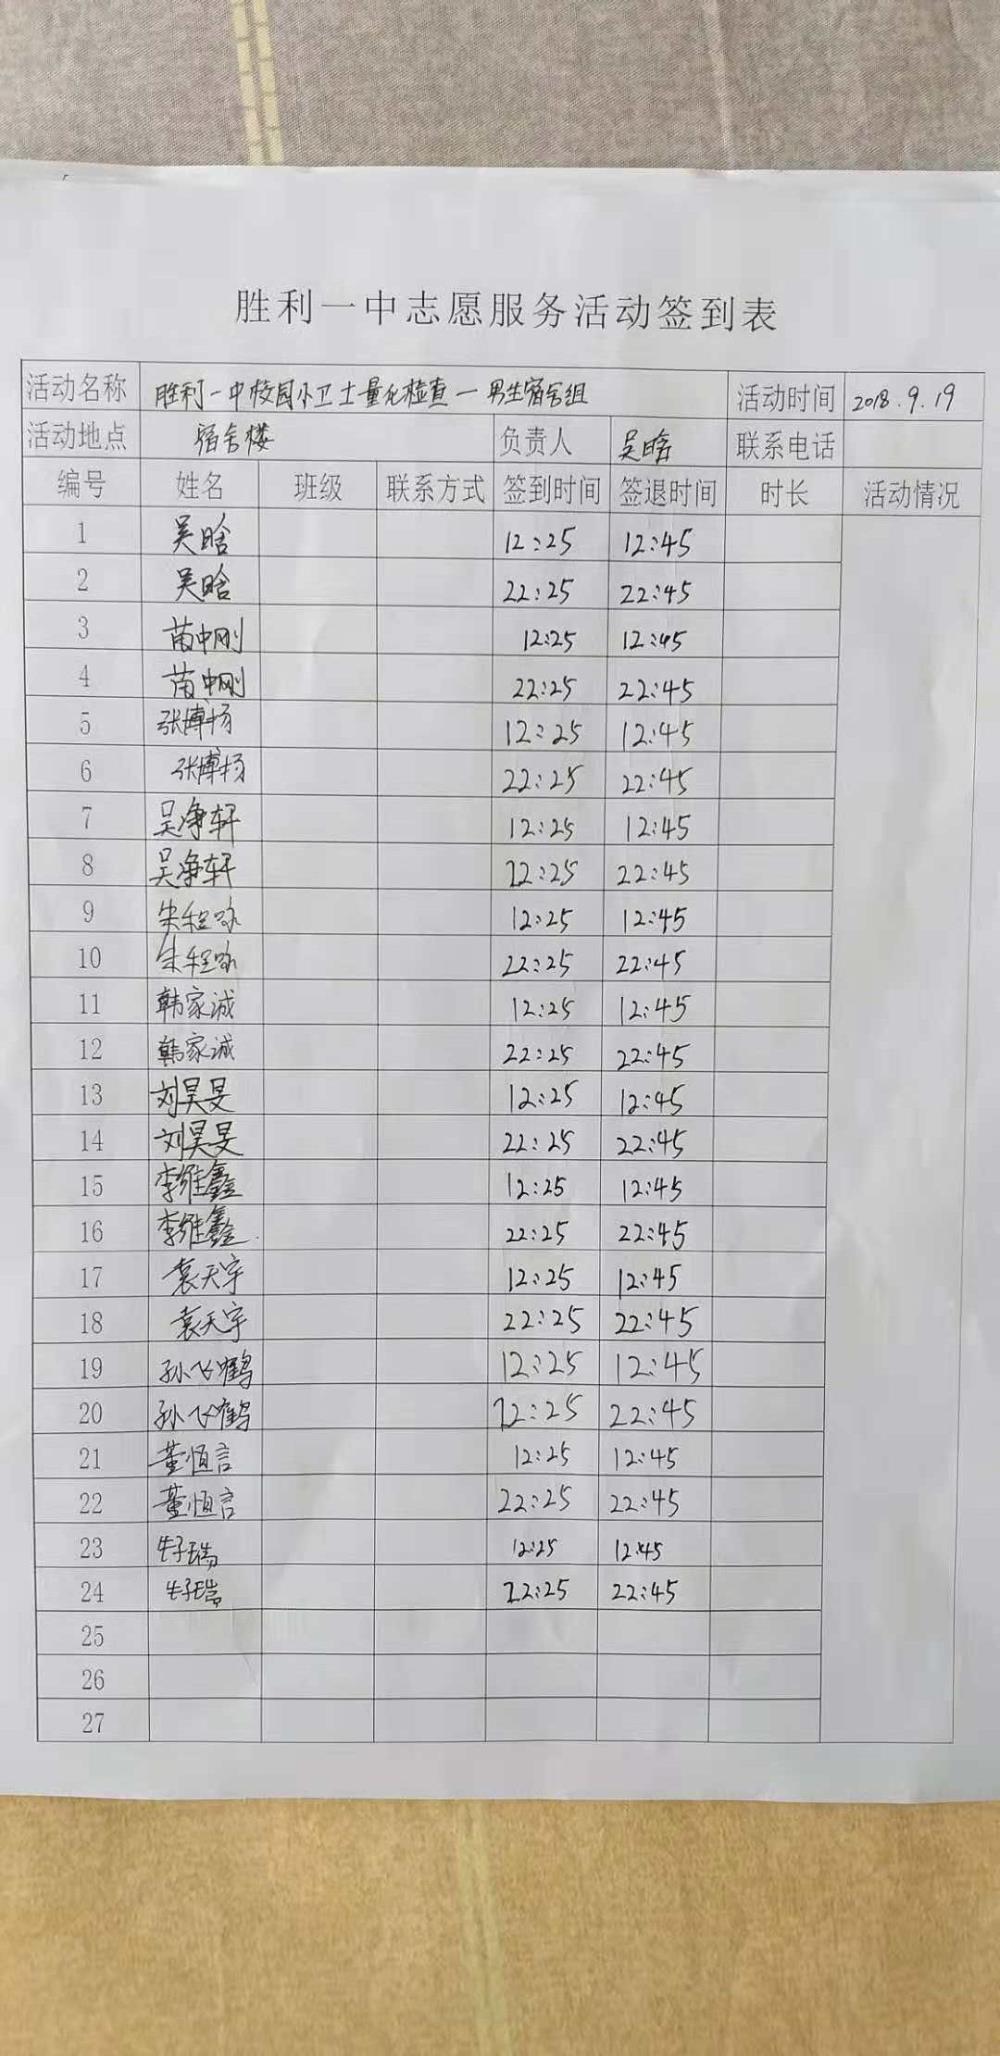 胜利一中志愿服务活动签到表
活动名称 胜利一中校园小卫士量化检查一男生宿舍组 活动时间 2018.9.19
活动地点 宿舍楼 负责人 吴晗 联系电话
编号 姓名 班级 联系方式 签到时间 签退时间 时长 活动情况
1 吴晗 12:25 12:45
2 吴晗 22:25 22:45
3 苗中刚 12:25 12:45
4 苗中刚 22:25 22:45
5 张博扬 12:25 12:45
6 张博扬 22:25 22:45
7 吴净轩 12:25 12:45
8 吴净轩 22:25 22:45
9 朱程咏 12:25 12:45
10 朱程咏 22:25 22:45
11 韩家诚 12:25 12:45
12 韩家诚 22:25 22:45
13 刘昊旻 12:25 12:45
14 刘昊旻 22:25 22:45
15 李维鑫 12:25 12:45
16 李维鑫 22:25 22:45
17 袁天宇 12:25 12:45
18 袁天宇 22:25 22:45
19 孙飞鹤 12:25 12:45
20 孙飞鹤 22:25 22:45
21 董恒言 12:25 12:45
22 董恒言 22:25 22:45
23 12:25 12:45
24 22:25 22:45
25
26
27